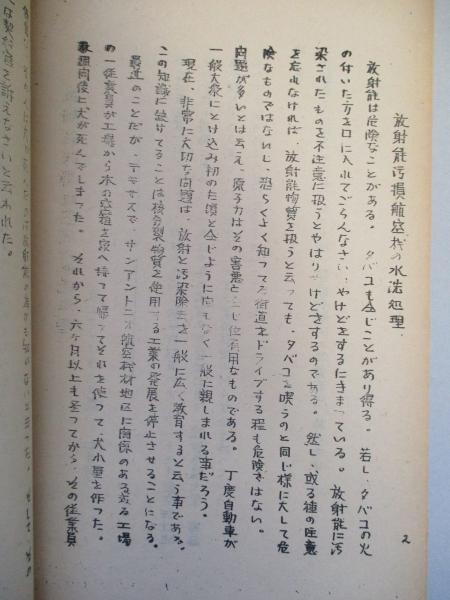 放射能汚損航空機の水洗処理
放射能は危険なことがある。タバコも全じことがあり得る。若し、タバコの火
の付いた方を口に入れてごらんなさい、やけどをするにきまっている。放射能に汚
染されたものを不注意に扱うとやはりやけどをするのである。然し、或る種の注意
を忘れなければ、放射能物質を扱うと云っても、タバコを喫うのと同じ様に大して危
険なものではないし、恐らくよく知ってる街道をドライブする程も危険ではない。
問題が多いとは云え、原子力はその害悪と同じ位有用なものである。丁度自動車が
一般大衆にとけ込み初めた頃と全じように向もなく一般に親しまれる事だろう。
現在、非常に大切な問題は、放射と汚染除去を一般に広く教育すると云う事である。
この知識に欠けてることは核分裂物質を使用する工業の発展を停止させることになる。
最近のことだが、テキサスで、サンアントニオ航空機材地区に関係のある或る工場
の一従業員が工場から木の空箱を家へ持って帰ってそれを使って、犬小屋を作った。
数週間後に、犬が死んでしまった。それから、六ヶ月以上も至ってから、その従業員
2
は契約を訴えなさいと云われた。